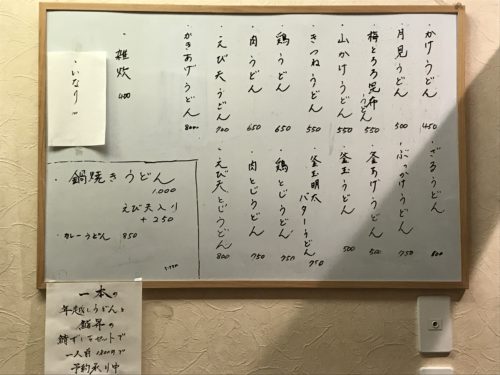 ・かけうどん 450
・月見うどん 500
・梅とろろ昆布うどん 550
・山かけうどん 550
・きつねうどん 550
・鶏うどん 650
・肉うどん 650
・えび天うどん 700
・かきあげうどん 800
・雑炊 400
・いなり
・ざるうどん 600
・ぶっかけうどん 750
・釜あげうどん 500
・釜玉うどん 500
・釜玉明太バターうどん 750
・鶏とじうどん 750
・肉とじうどん 750
・えび天とじうどん 800
・鍋焼きうどん
1,000
えび天入り
+250
・カレーうどん 850
一本の
年越しうどんと
予約承り中